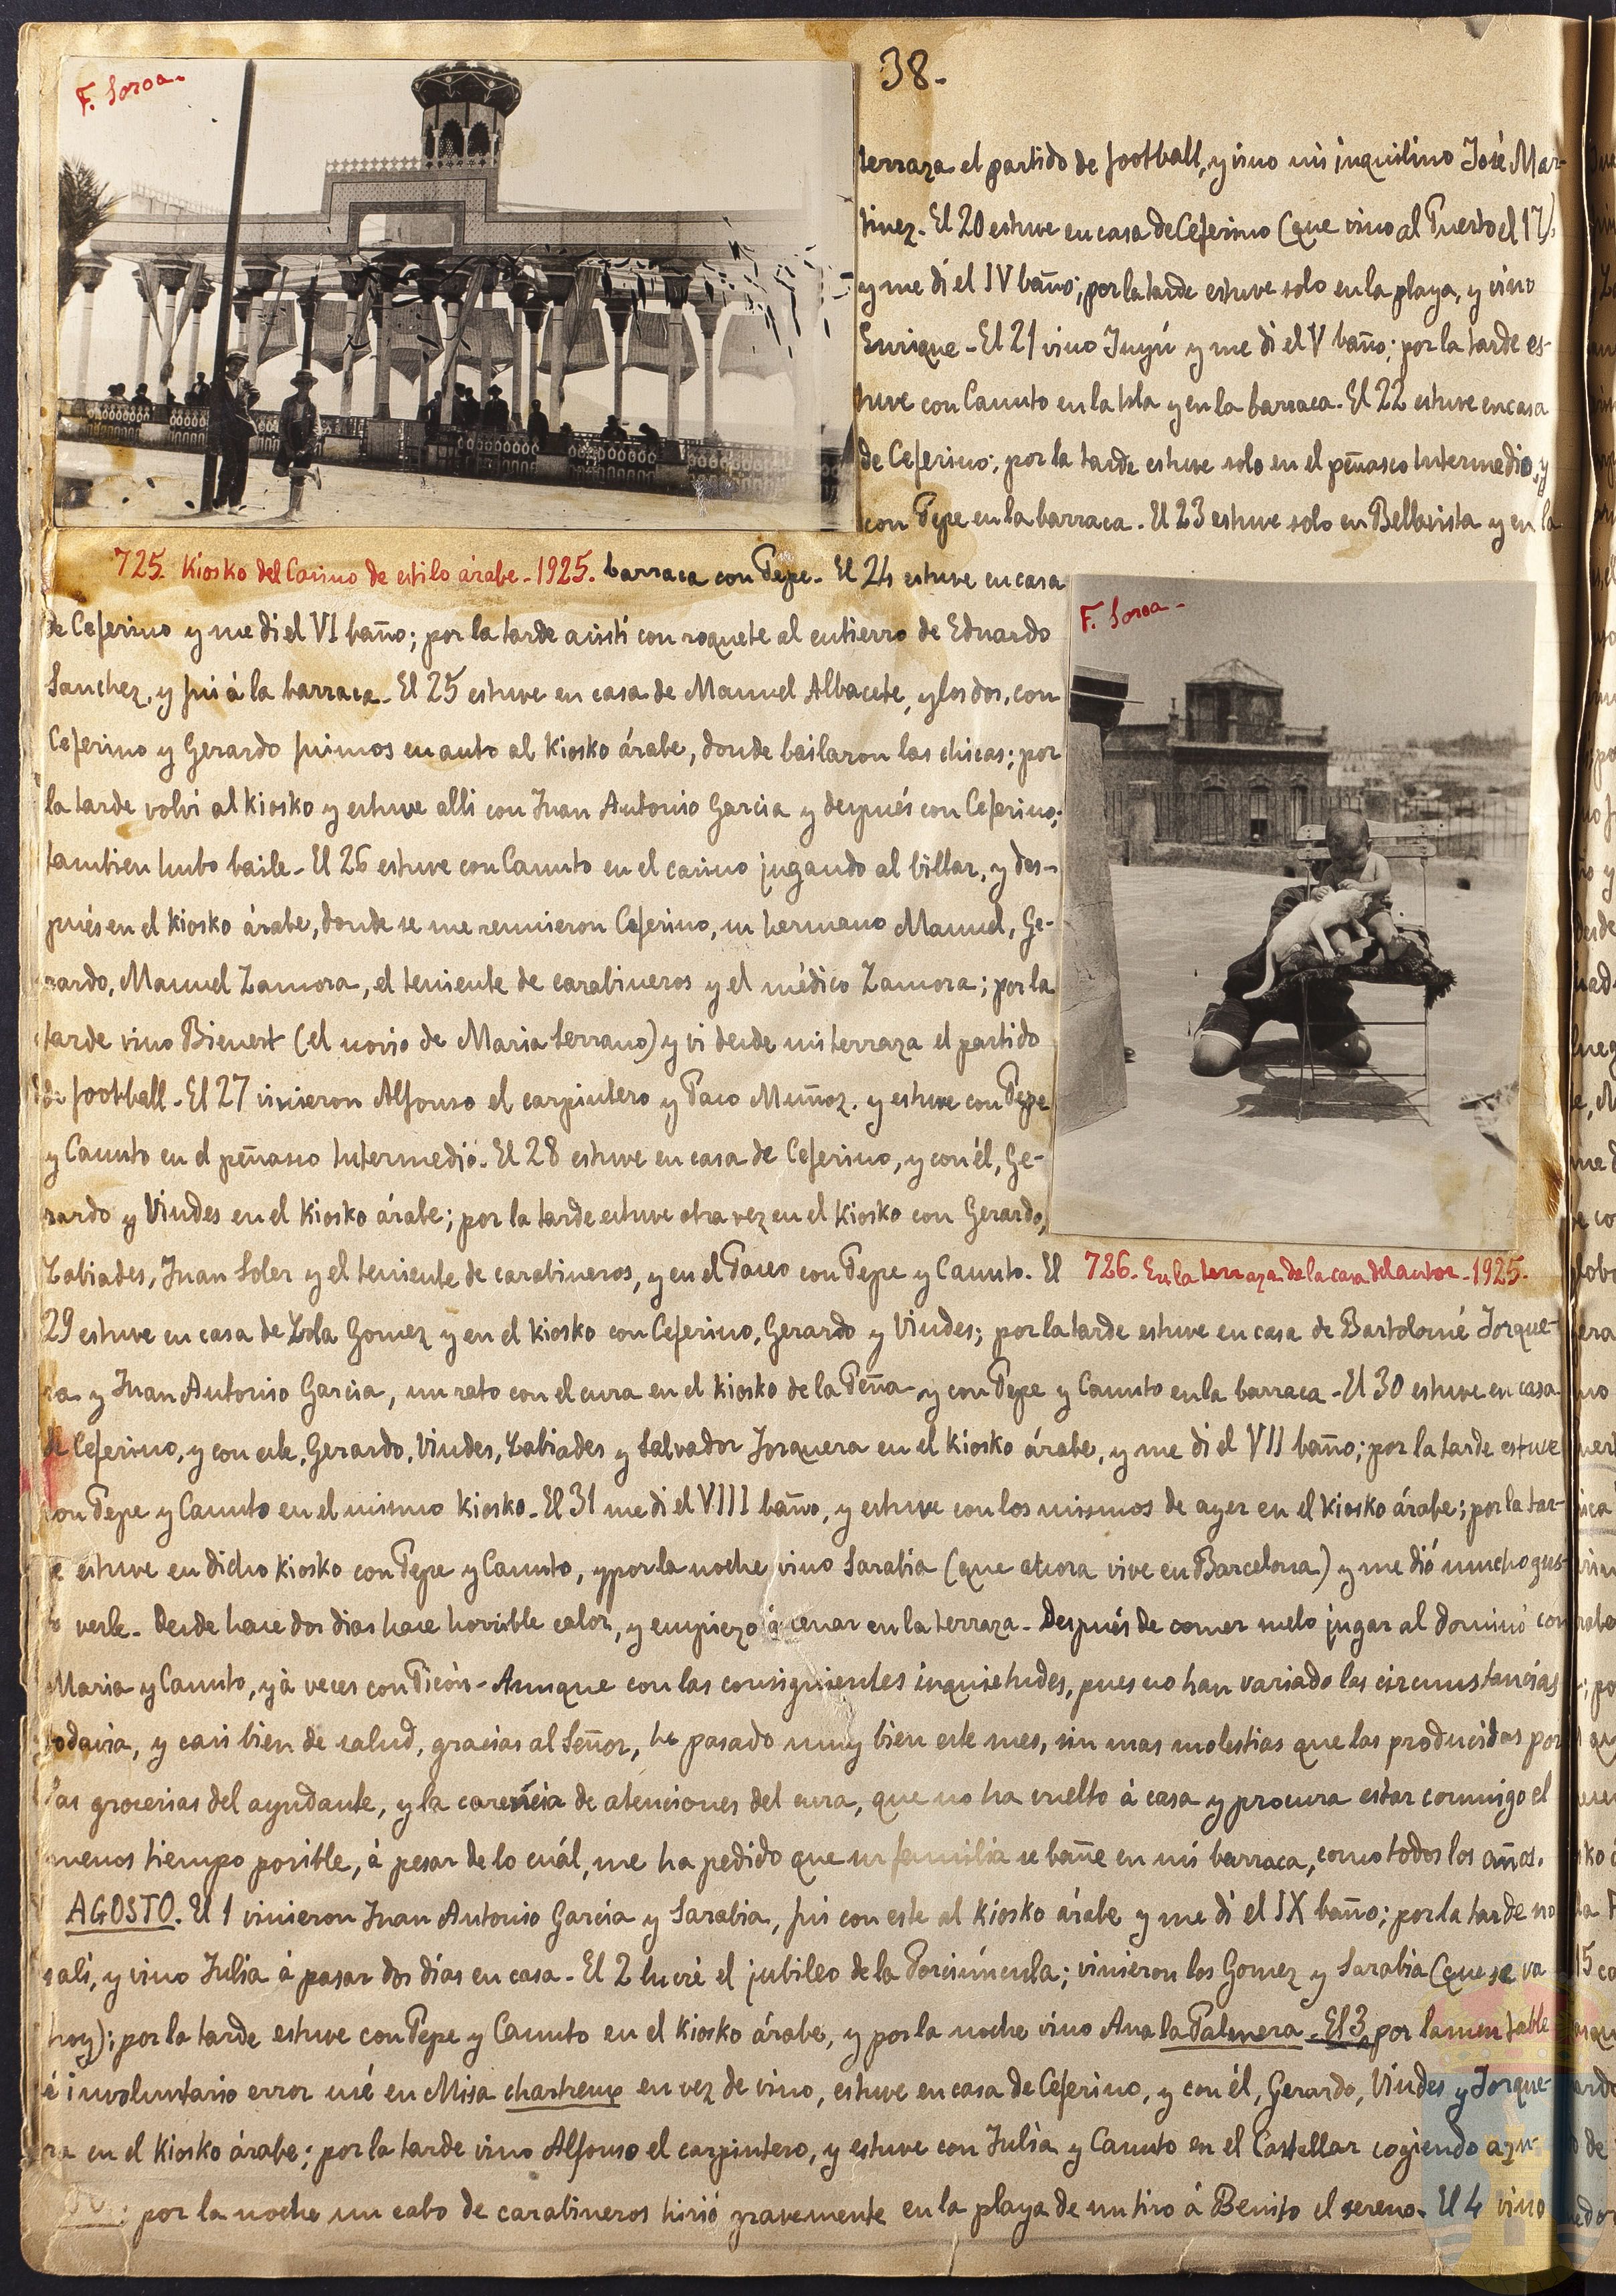 38.
F. Soroa.
terraza el partido de football, y vino mi inquilino José Mar-
tinez. El 20 estuve en casa de Ceferino (que vino al Puerto el 17),
y me di el IV baño; por la tarde estuve solo en la playa, y vino
Enrique. El 21 vino Juyú y me di el V baño; por la tarde es-
tuve con Canuto en la Isla y en la barraca. El 22 estuve en casa
de Ceferino; por la tarde estuve solo en el peñasco Intermedio, y
con Pepe en la barraca. El 23 estuve solo en Bellavista y en la
725. Kiosko del Casino de estilo árabe. 1925. barraca con Pepe. El 24 estuve en casa
F. Soroa.
de Ceferino y me di el VI baño; por la tarde asistí con roquete al entierro de Eduardo
Sanchez, y fui á la barraca. El 25 estuve en casa de Manuel Albacete, y los dos, con
Ceferino y Gerardo fuimos en auto al Kiosko árabe, donde bailaron las chicas; por
la tarde volví al Kiosko y estuve alli con Juan Antonio Garcia y después con Ceferino;
tambien hubo baile. El 26 estuve con Canuto en el casino jugando al billar, y des-
pués en el Kiosko árabe, donde se me reunieron Ceferino, su hermano Manuel, Ge-
rardo, Manuel Zamora, el teniente de carabineros y el médico Zamora; por la
tarde vino Bienert (el novio de Maria Serrano) y vi desde mi terraza el partido
de football. El 27 vinieron Alfonso el carpintero y Paco Muñoz. y estuve con Pepe
y Canuto en el peñasco Intermedio. El 28 estuve en casa de Ceferino, y con él, Ge-
rardo y Viudes en el Kiosko árabe; por la tarde estuve otra vez en el Kiosko con Gerardo,
Zabiades, Juan Soler y el teniente de carabineros, y en el Paseo con Pepe y Canuto. El
726. En la terraza de la casa del autor. 1925.
29 estuve en casa de Lola Gomez y en el Kiosko con Ceferino, Gerardo y Viudes; por la tarde estuve en casa de Bartolomé Jorque-
ra y Juan Antonio Garcia, un rato con el cura en el Kiosko de la Peña y con Pepe y Canuto en la barraca. El 30 estuve en casa
de Ceferino, y con este, Gerardo, Viudes, Zabiades y Salvador Jorquera en el Kiosko árabe, y me di el VII baño; por la tarde estuve
con Pepe y Canuto en el mismo Kiosko. El 31 me di el VIII baño, y estuve con los mismos de ayer en el Kiosko árabe; por la tar-
de estuve en dicho Kiosko con Pepe y Canuto, y por la noche vino Sarabia (que ahora vive en Barcelona) y me dió mucho gus-
to verle. Desde hace dos dias hace horrible calor, y empiezo á cenar en la terraza. Después de comer suelo jugar al dominó con
Maria y Canuto, y á veces con Picón. Aunque con las consiguientes inquietudes, pues no han variado las circunstancias
todavia, y casi bien de salud, gracias al Señor, he pasado muy bien este mes, sin mas molestias que las producidas por
las groserias del ayudante, y la carencia de atenciones del cura, que no ha vuelto á casa y procura estar conmigo el
menos tiempo posible, á pesar de lo cuál, me ha pedido que su familia se bañe en mi barraca, como todos los años.
AGOSTO. El 1 vinieron Juan Antonio Garcia y Sarabia, fui con este al Kiosko árabe y me di el IX baño; por la tarde no
salí, y vino Julia á pasar dos días en casa. El 2 lucré el jubileo de la Porciúncula; vinieron los Gomez y Sarabia (que se va
hoy); por la tarde estuve con Pepe y Canuto en el Kiosko árabe, y por la noche vino Ana la Palmera. El 3, por lamentable
é involuntario error usé en Misa chartreux en vez de vino, estuve en casa de Ceferino, y con él, Gerardo, Viudes y Jorque-
ra en el Kiosko árabe; por la tarde vino Alfonso el carpintero, y estuve con Julia y Canuto en el Castellar cogiendo azu-
por la noche un cabo de carabineros hirió gravemente en la playa de un tiro á Benito el sereno. El 4 vino